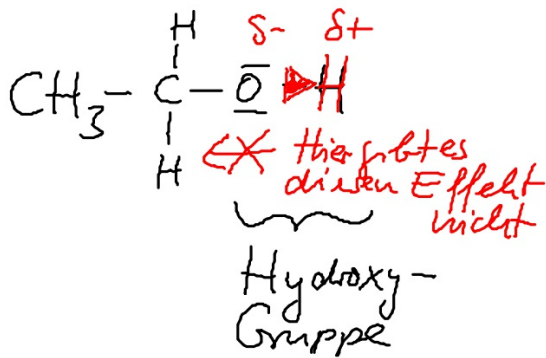 H δ- δ+
CH₃-C-O H
H Hier gibt es
diesen Effekt
nicht
Hydroxy-
Gruppe